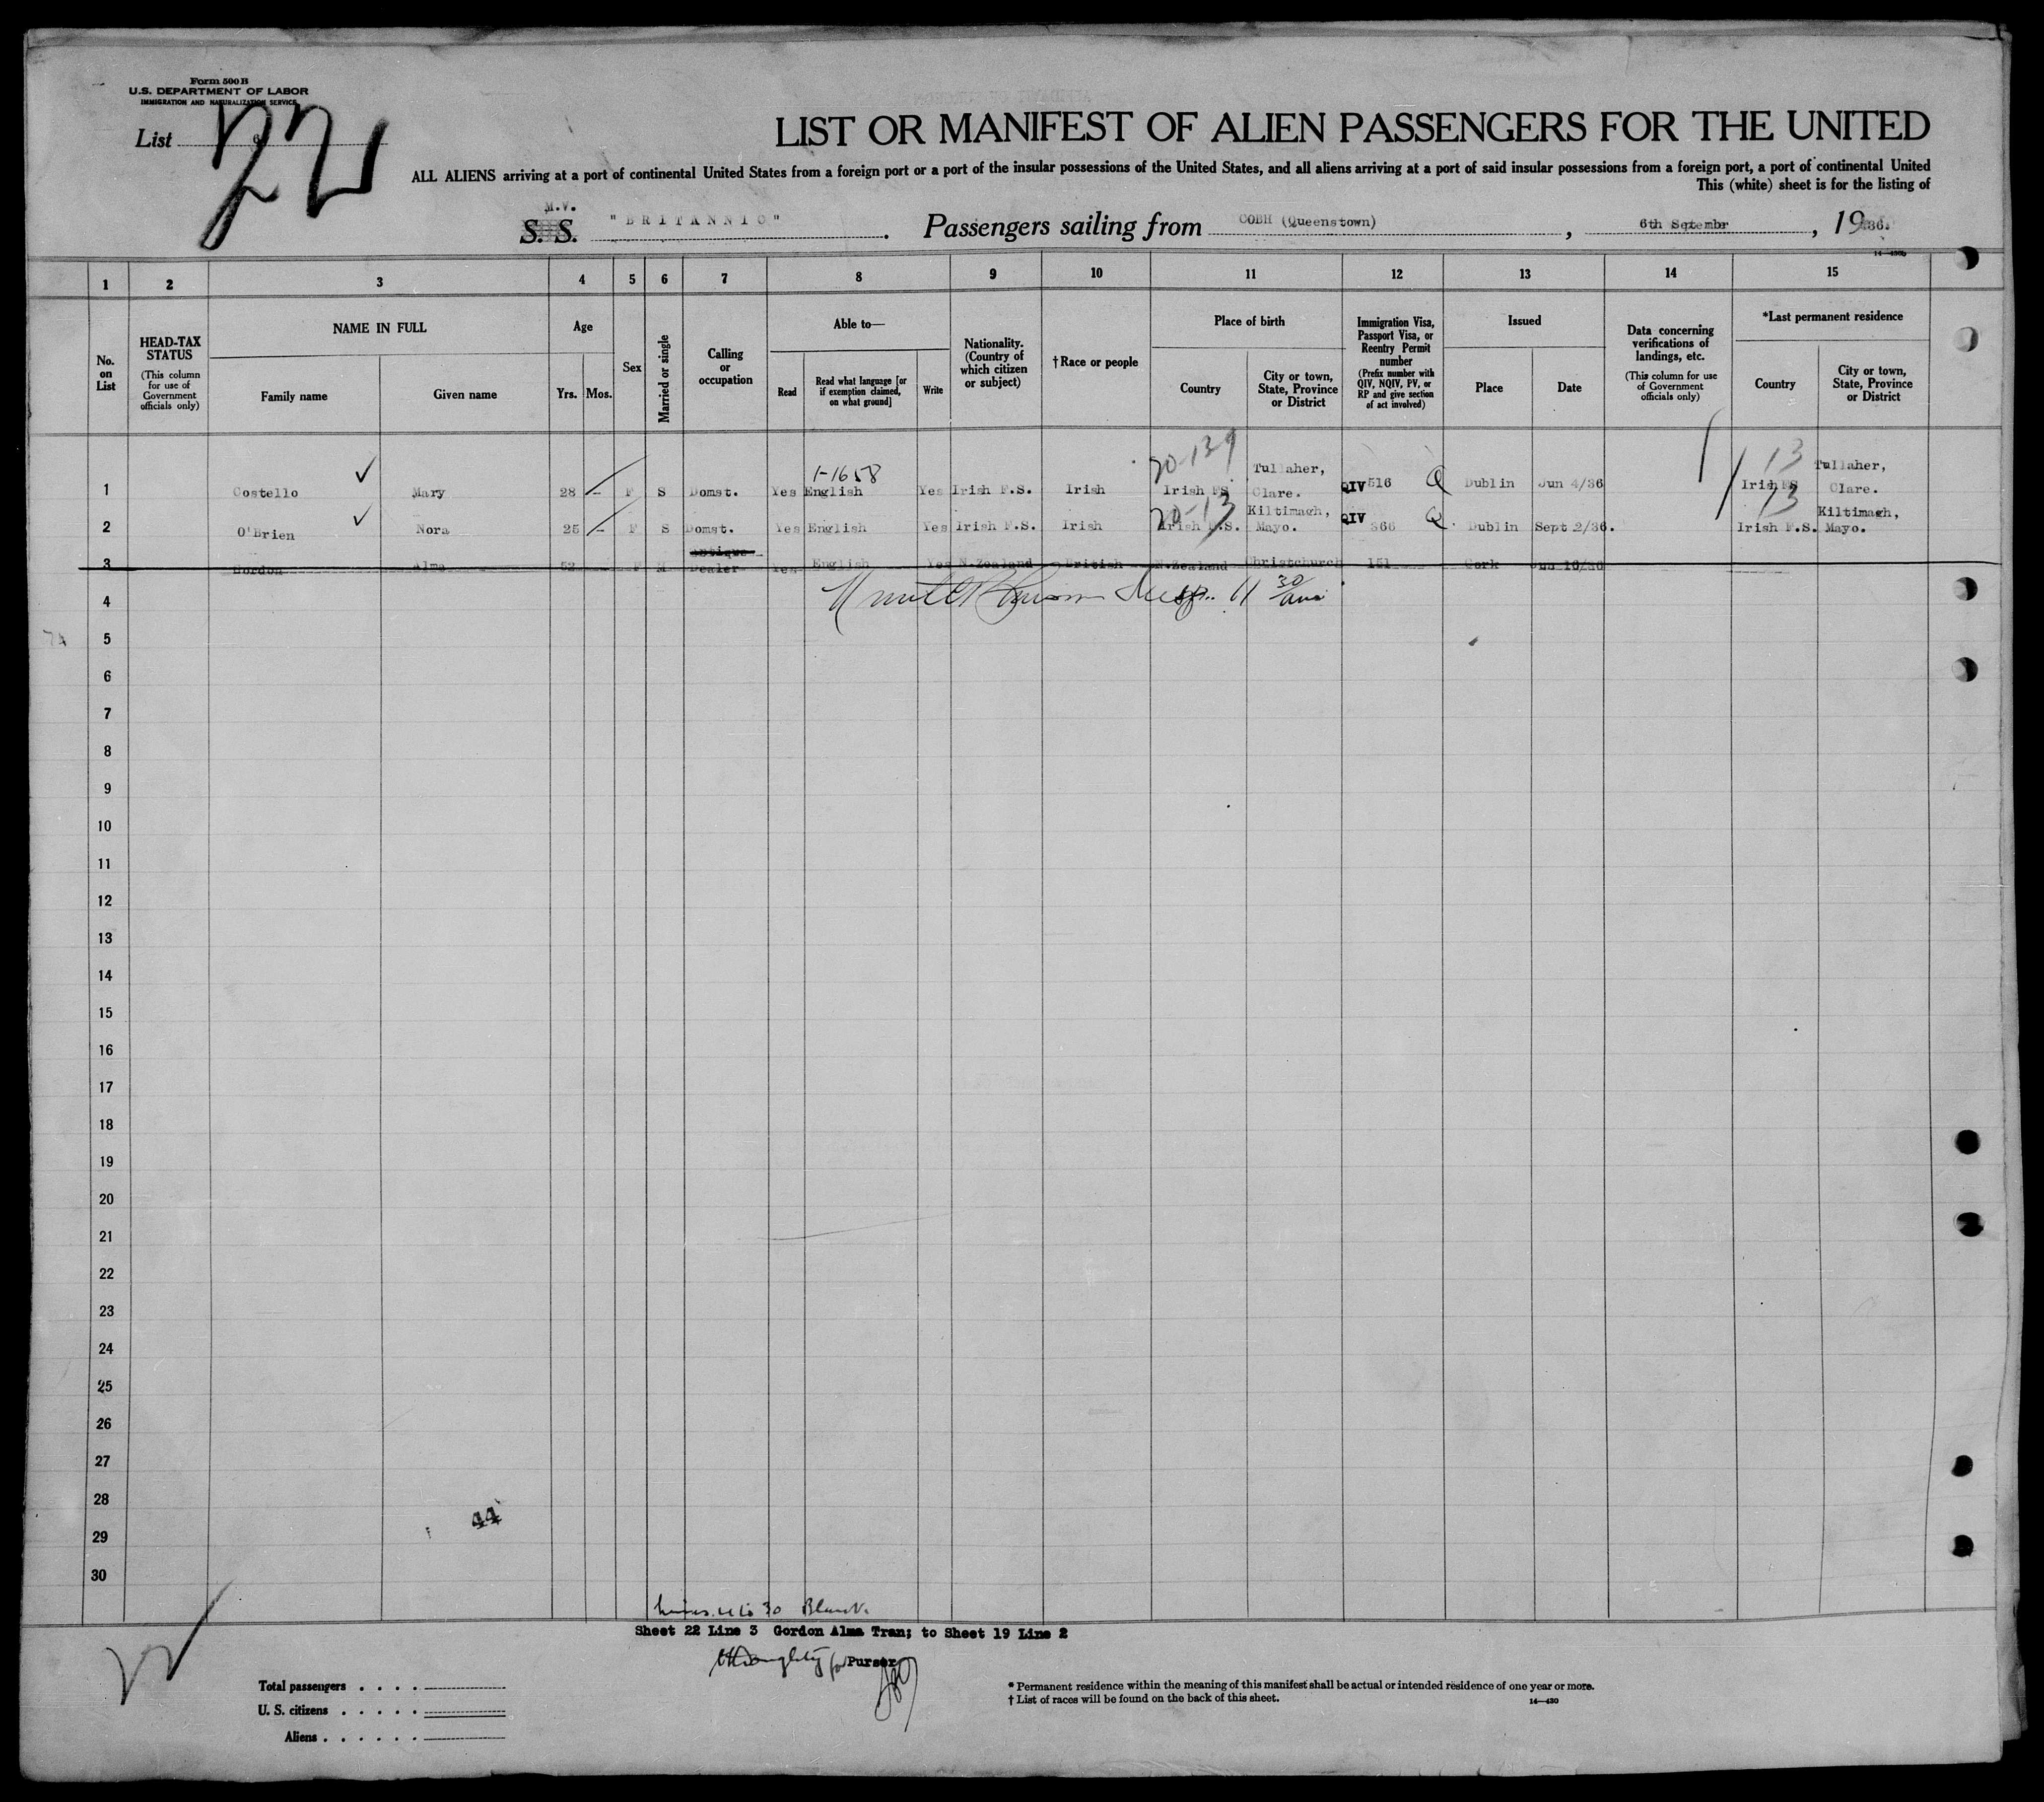 Form 500 B
U.S. DEPARTMENT OF LABOR
IMMIGRATION AND NATURALIZATION SERVICE
List 6
22
LIST OR MANIFEST OF ALIEN PASSENGERS FOR THE UNITED
ALL ALIENS arriving at a port of continental United States from a foreign port or a port of the insular possessions of the United States, and all aliens arriving at a port of said insular possessions from a foreign port, a port of continental United
This (white) sheet is for the listing of
M.V.
S. S. "BRITANNIC". Passengers sailing from COBH (Queenstown), 6th Setembr, 1936.
14—430b
1 2 3 4 5 6 7 8 9 10 11 12 13 14 15
No. on List
HEAD-TAX STATUS
(This column for use of Government officials only)
NAME IN FULL
Family name
Given name
Age
Yrs. Mos.
Sex
Married or single
Calling or occupation
Able to—
Read
Read what language [or if exemption claimed, on what ground]
Write
Nationality. (Country of which citizen or subject)
†Race or people
Place of birth
Country
City or town, State, Province or District
Immigration Visa, Passport Visa, or Reentry Permit number
(Prefix number with QIV, NQIV, PV, or RP and give section of act involved)
Issued
Place
Date
Data concerning verifications of landings, etc.
(This column for use of Government officials only)
*Last permanent residence
Country
City or town, State, Province or District
1-1658 20-139 13
1 Costello Mary 28 - F S Domst. Yes English Yes Irish F.S. Irish Irish FS Tullaher, Clare. QIV 516 Q Dublin Jun 4/36 Irish FS Tullaher, Clare.
20-13 13
2 O'Brien Nora 25 - F S Domst. Yes English Yes Irish F.S. Irish Irish F.S. Kiltimagh, Mayo. QIV 366 Q Dublin Sept 2/36. Irish F.S. Kiltimagh, Mayo.
3 Gordon Alma 52 F M Antique Dealer Yes English Yes N.Zealand British N.Zealand Christchurch 151 Cork 16/36
11 30
4
5
6
7
8
9
10
11
12
13
14
15
16
17
18
19
20
21
22
23
24
25
26
27
28
29
30
44
Lines 4 to 30 Blank.
Sheet 22 Line 3 Gordon Alma Tran; to Sheet 19 Line 2
for Purser
Total passengers . . . .
U. S. citizens . . . . .
Aliens . . . . . .
* Permanent residence within the meaning of this manifest shall be actual or intended residence of one year or more.
† List of races will be found on the back of this sheet.
14—430